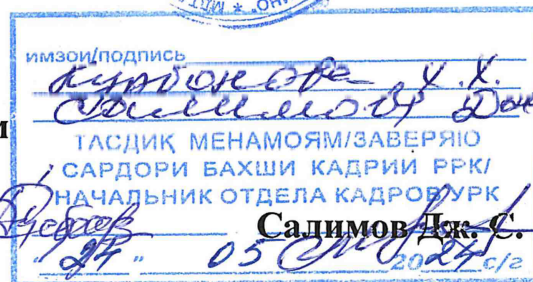 имзои/подпись
Курбонова Х.Х.
Салимов Дж
ТАСДИҚ МЕНАМОЯМ/ЗАВЕРЯЮ
САРДОРИ БАХШИ КАДРИИ РРК/
НАЧАЛЬНИК ОТДЕЛА КАДРОВ УРК
Салимов Дж. С.
"24" 05 2024 с/г